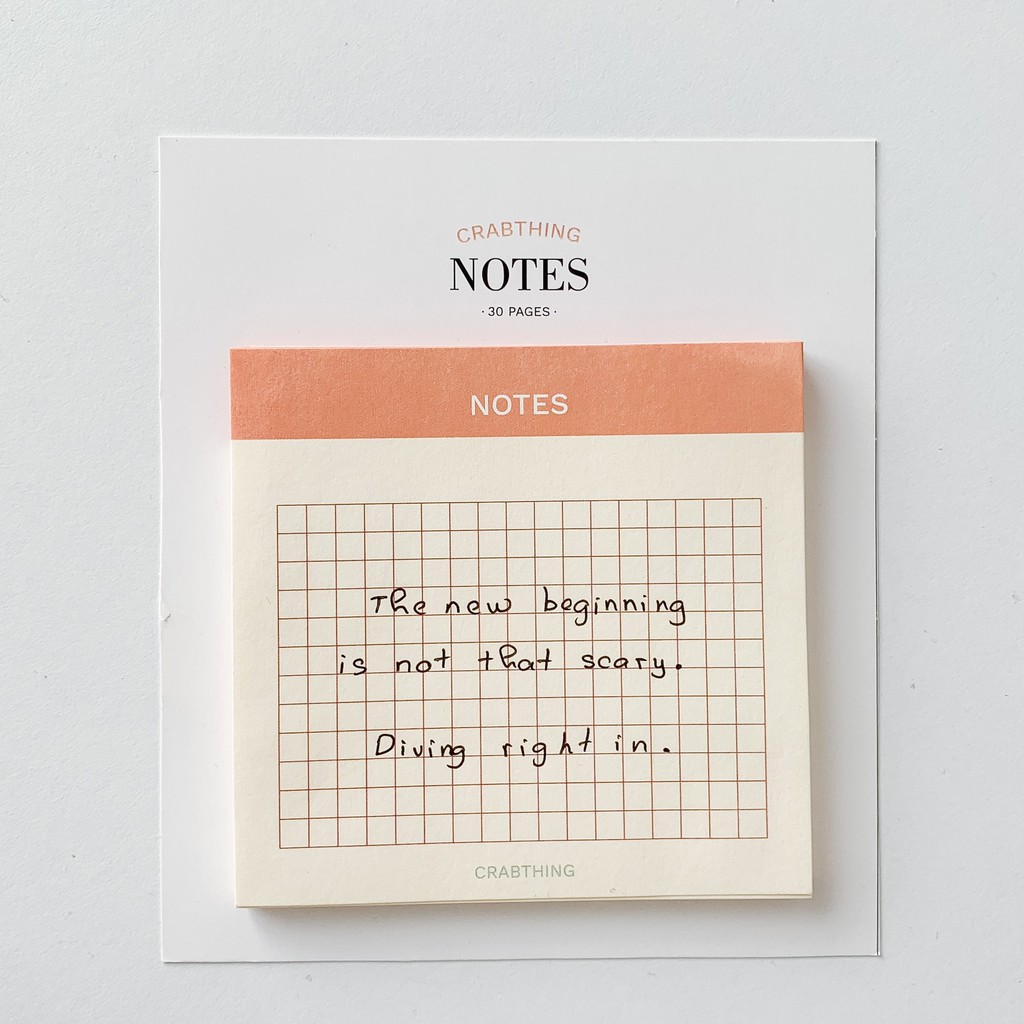 CRABTHING
NOTES
· 30 PAGES ·
NOTES
The new beginning
is not that scary.
Diving right in.
CRABTHING